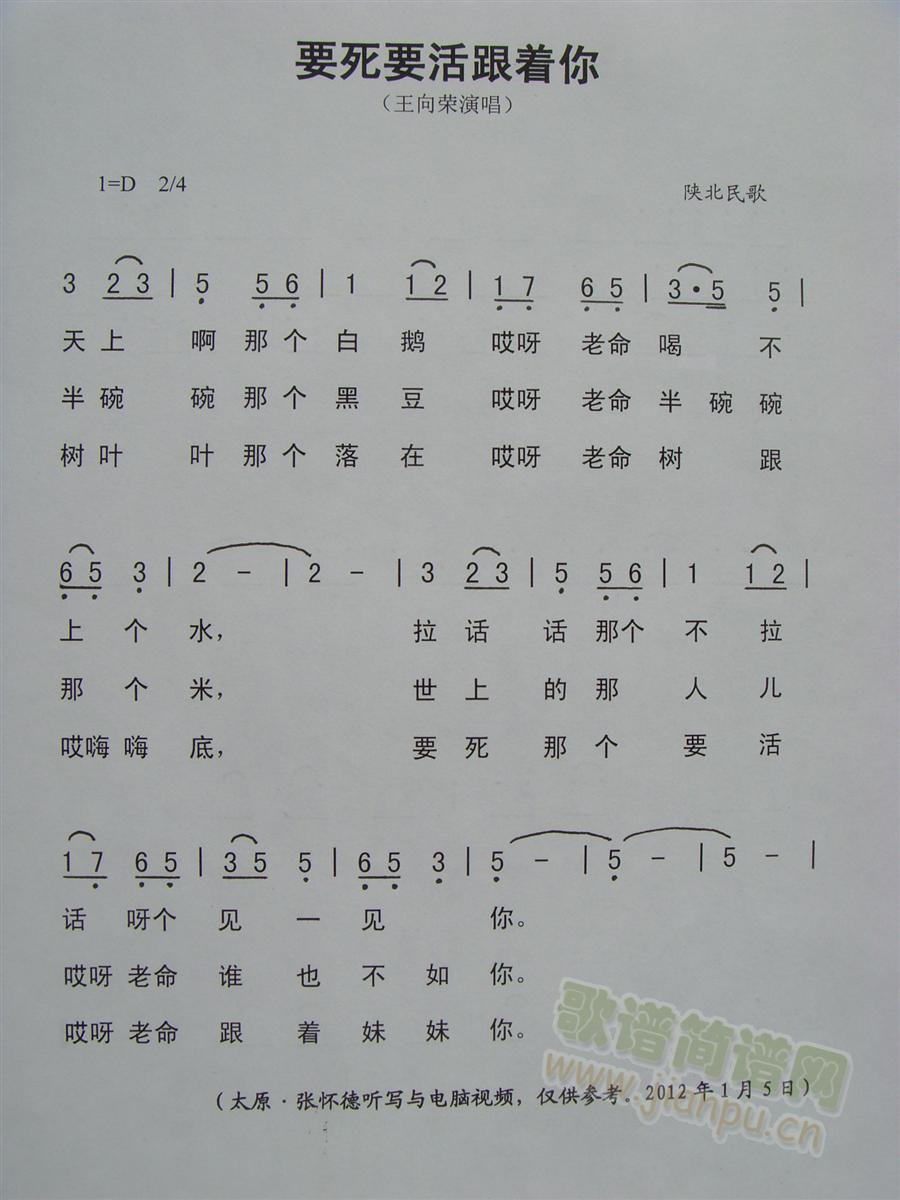 要死要活跟着你
（王向荣演唱）
1=D 2/4
陕北民歌
3 2 3 | 5 5 6 | 1 1 2 | 1 7 6 5 | 3 · 5 5 |
天上 啊那个白 鹅 哎呀 老命喝 不
半碗 碗那个黑 豆 哎呀 老命半碗碗
树叶 叶那个落 在 哎呀 老命树 跟
6 5 3 | 2 - | 2 - | 3 2 3 | 5 5 6 | 1 1 2 |
上 个 水， 拉话 话那个 不 拉
那 个 米， 世上 的那 人 儿
哎嗨嗨 底， 要死 那个 要 活
1 7 6 5 | 3 5 5 | 6 5 3 | 5 - | 5 - | 5 - |
话 呀个 见 一 见 你。
哎呀 老命 谁 也 不 如 你。
哎呀 老命 跟 着 妹 妹 你。
（太原·张怀德听写与电脑视频，仅供参考。2012年1月5日）
歌谱简谱网
www.jianpu.cn